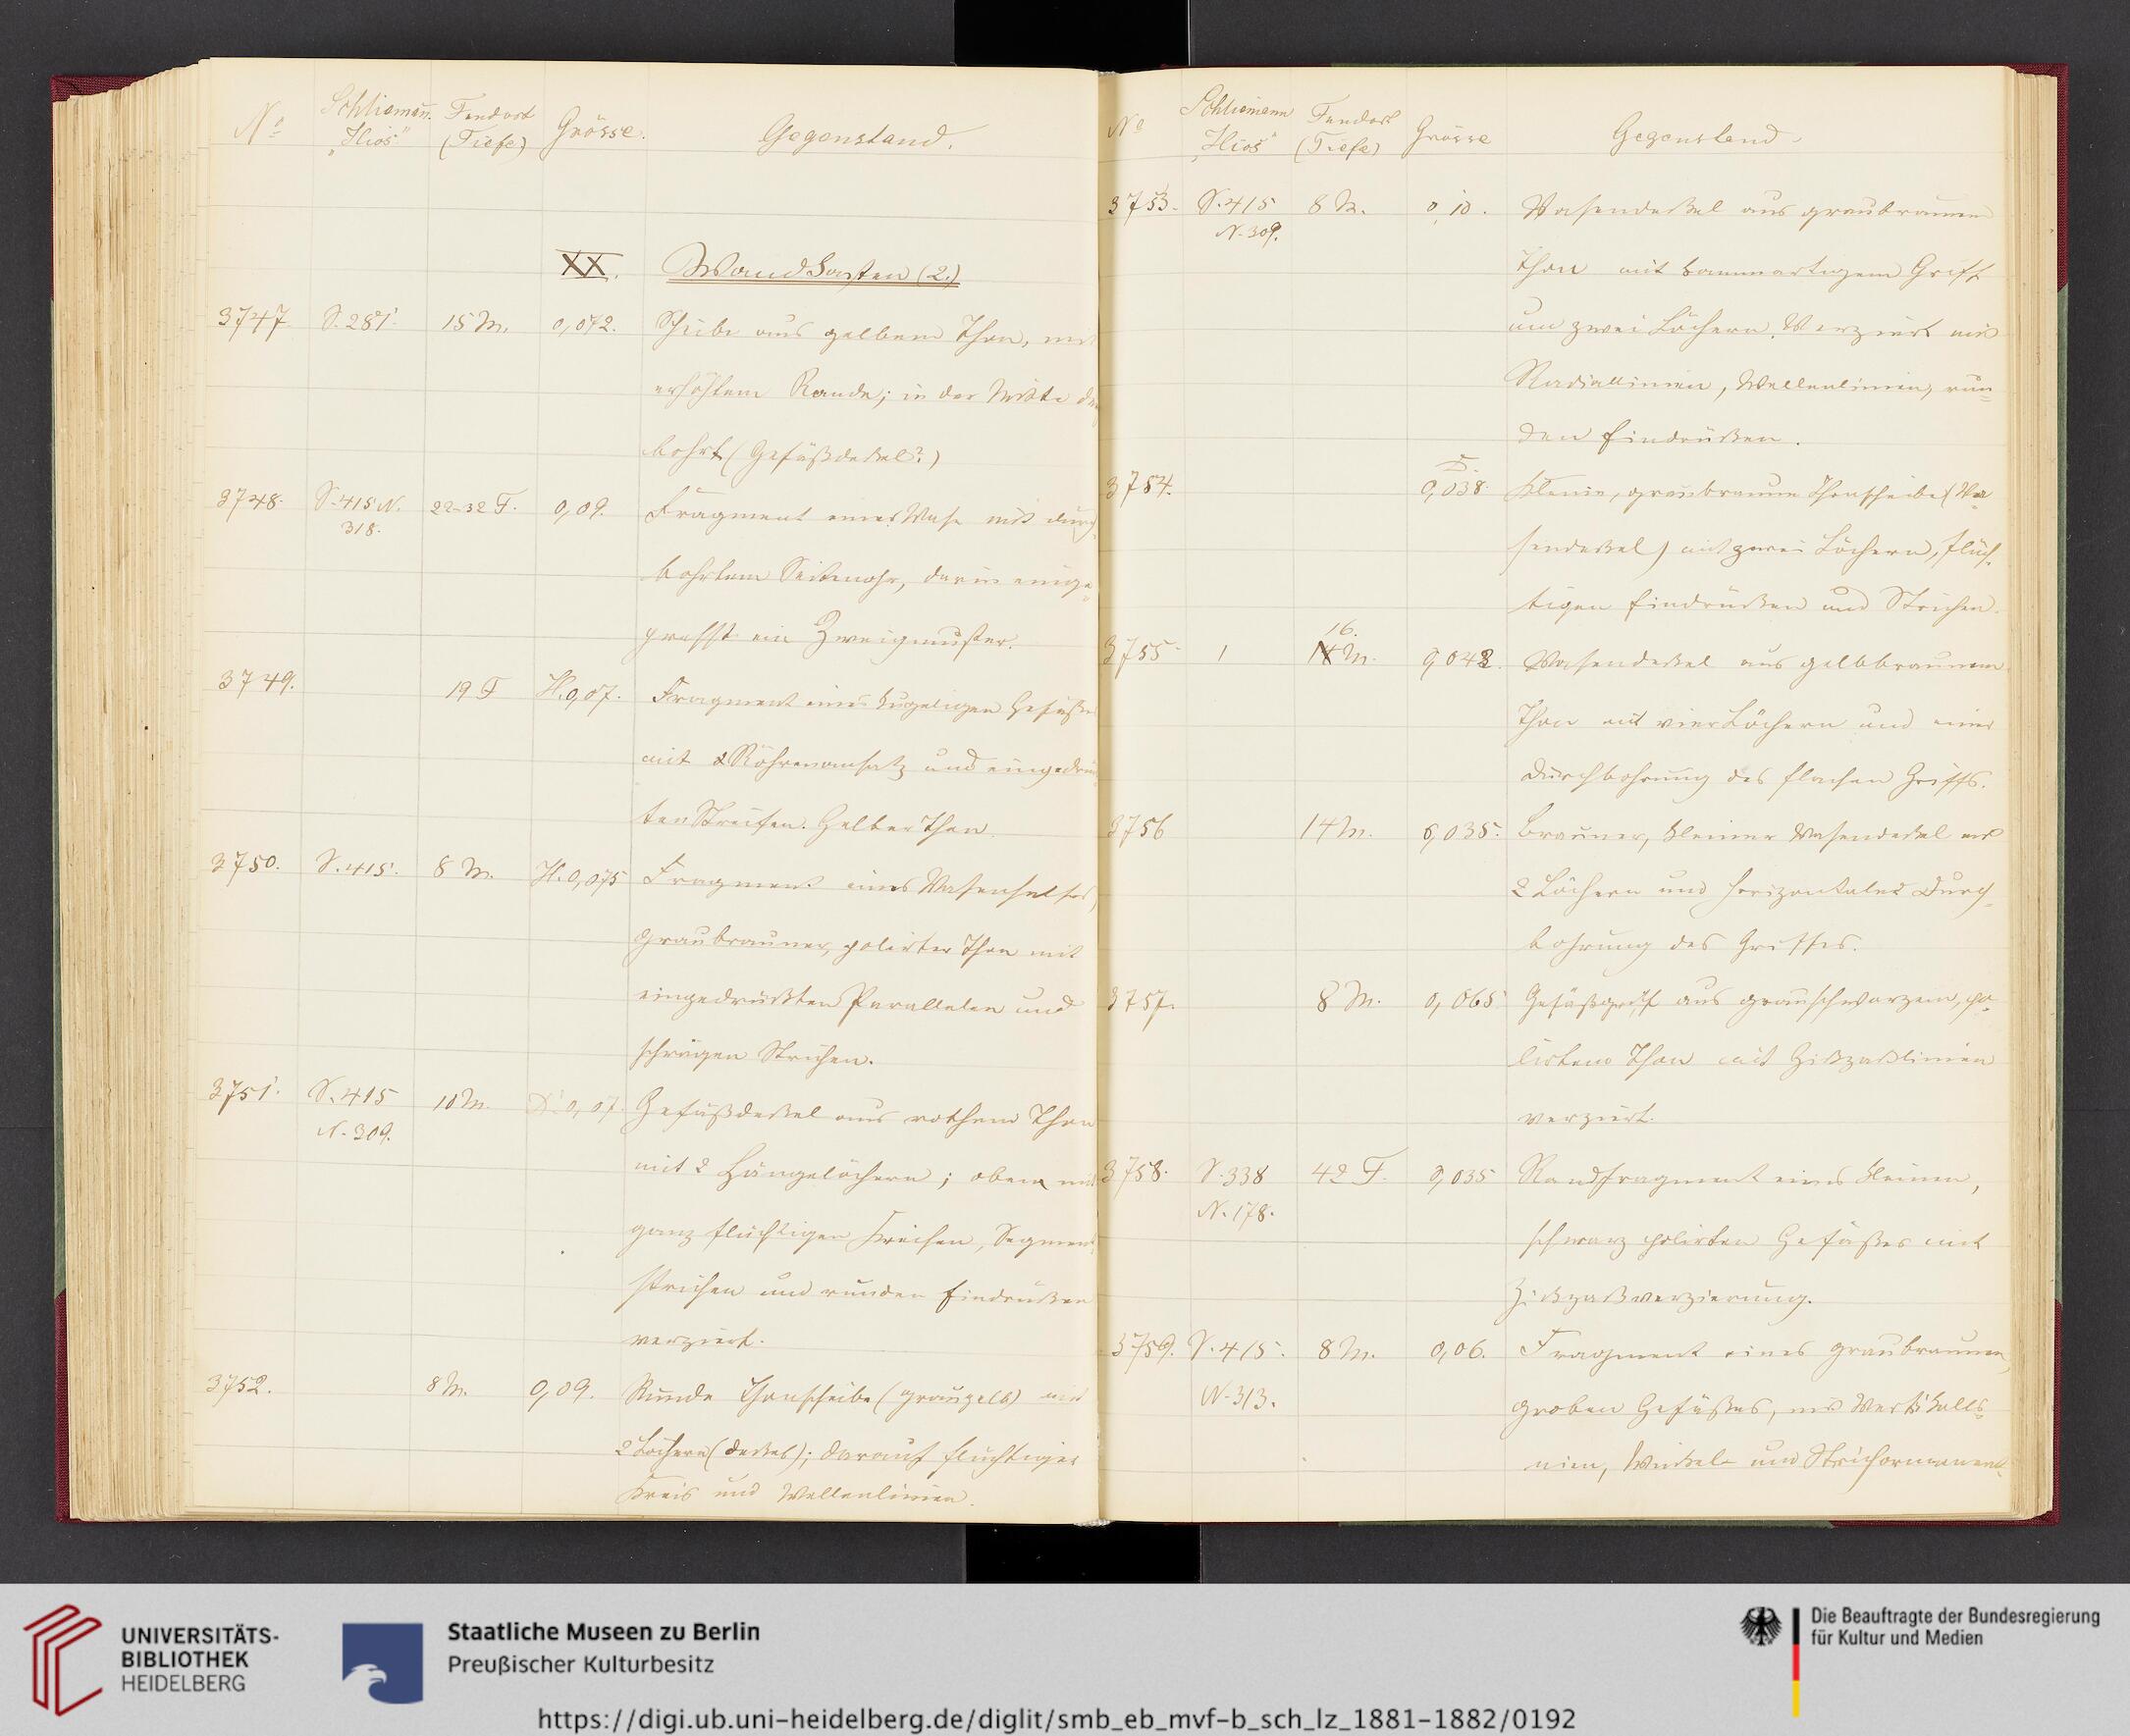 No Schliemann „Ilios" Fundort (Tiefe) Grösse. Gegenstand.
XX. Wandkasten (2.)
3747 S. 281. 15 M. 0,072. Scheibe aus gelbem Thon, mit
erhöhtem Rande; in der Mitte
bohrt (Gefäßdeckel?)
3748. S. 415 N. 318. 22-32 F. 0,09. Fragment einer Vase mit durch-
bohrtem Seitenohr, darin einge-
presst ein Zweigmuster.
3749. 19 F H. 0,07. Fragment eines kugeligen Gefäßes
mit Röhrenansatz und eingedrü
ten Streifen. Gelber Thon.
3750. S. 415. 8 M. H. 0,075 Fragment eines Vasenhalses,
graubrauner, polirter Thon mit
eingedrückten Parallelen und
schrägen Strichen.
3751. S. 415 N. 309. 10 M. D. 0,07. Gefäßdeckel aus rothem Thon
mit 2 Hängelöchern; oben mit
ganz flüchtigen Kreisen, Segment-
strichen und runden Eindrücken
verziert.
3752. 8 M. 0,09. Runde Thonscheibe (graugelb) mit
2 Löchern (Deckel); darauf flüchtiger
Kreis und Wellenlinien.
No Schliemann „Ilios" Fundort (Tiefe) Grösse Gegenstand.
3753. S. 415 N. 309. 8 M. 0,10. Vasendeckel aus graubraunem
Thon mit kammartigem Griff
und zwei Löchern. Verziert mit
Radiallinien, Wellenlinien, run-
den Eindrücken.
3754. D. 0,038. Kleine, graubraune Thonscheibe (Va-
sendeckel) mit zwei Löchern, flüch-
tigen Eindrücken und Strichen.
3755. 1 16. 14 M. 0,048. Vasendeckel aus gelbbraunem
Thon mit vier Löchern und einer
Durchbohrung des flachen Griffs.
3756 14 M. 0,035. Brauner, kleiner Vasendeckel mit
2 Löchern und horizontaler Durch-
bohrung des Griffes.
3757. 8 M. 0,065 Gefäßgriff aus grauschwarzem, po-
lirtem Thon mit Zickzacklinien
verziert.
3758. S. 338 N. 178. 42 F. 0,035 Randfragment eines kleinen,
schwarz polirten Gefäßes mit
Zickzackverzierung.
3759. S. 415. N. 313. 8 M. 0,06. Fragment eines graubraunen,
groben Gefäßes, mit
nien, Winkel- und Strichornament
UNIVERSITÄTS-
BIBLIOTHEK
HEIDELBERG
Staatliche Museen zu Berlin
Preußischer Kulturbesitz
Die Beauftragte der Bundesregierung
für Kultur und Medien
https://digi.ub.uni-heidelberg.de/diglit/smb_eb_mvf-b_sch_lz_1881-1882/0192